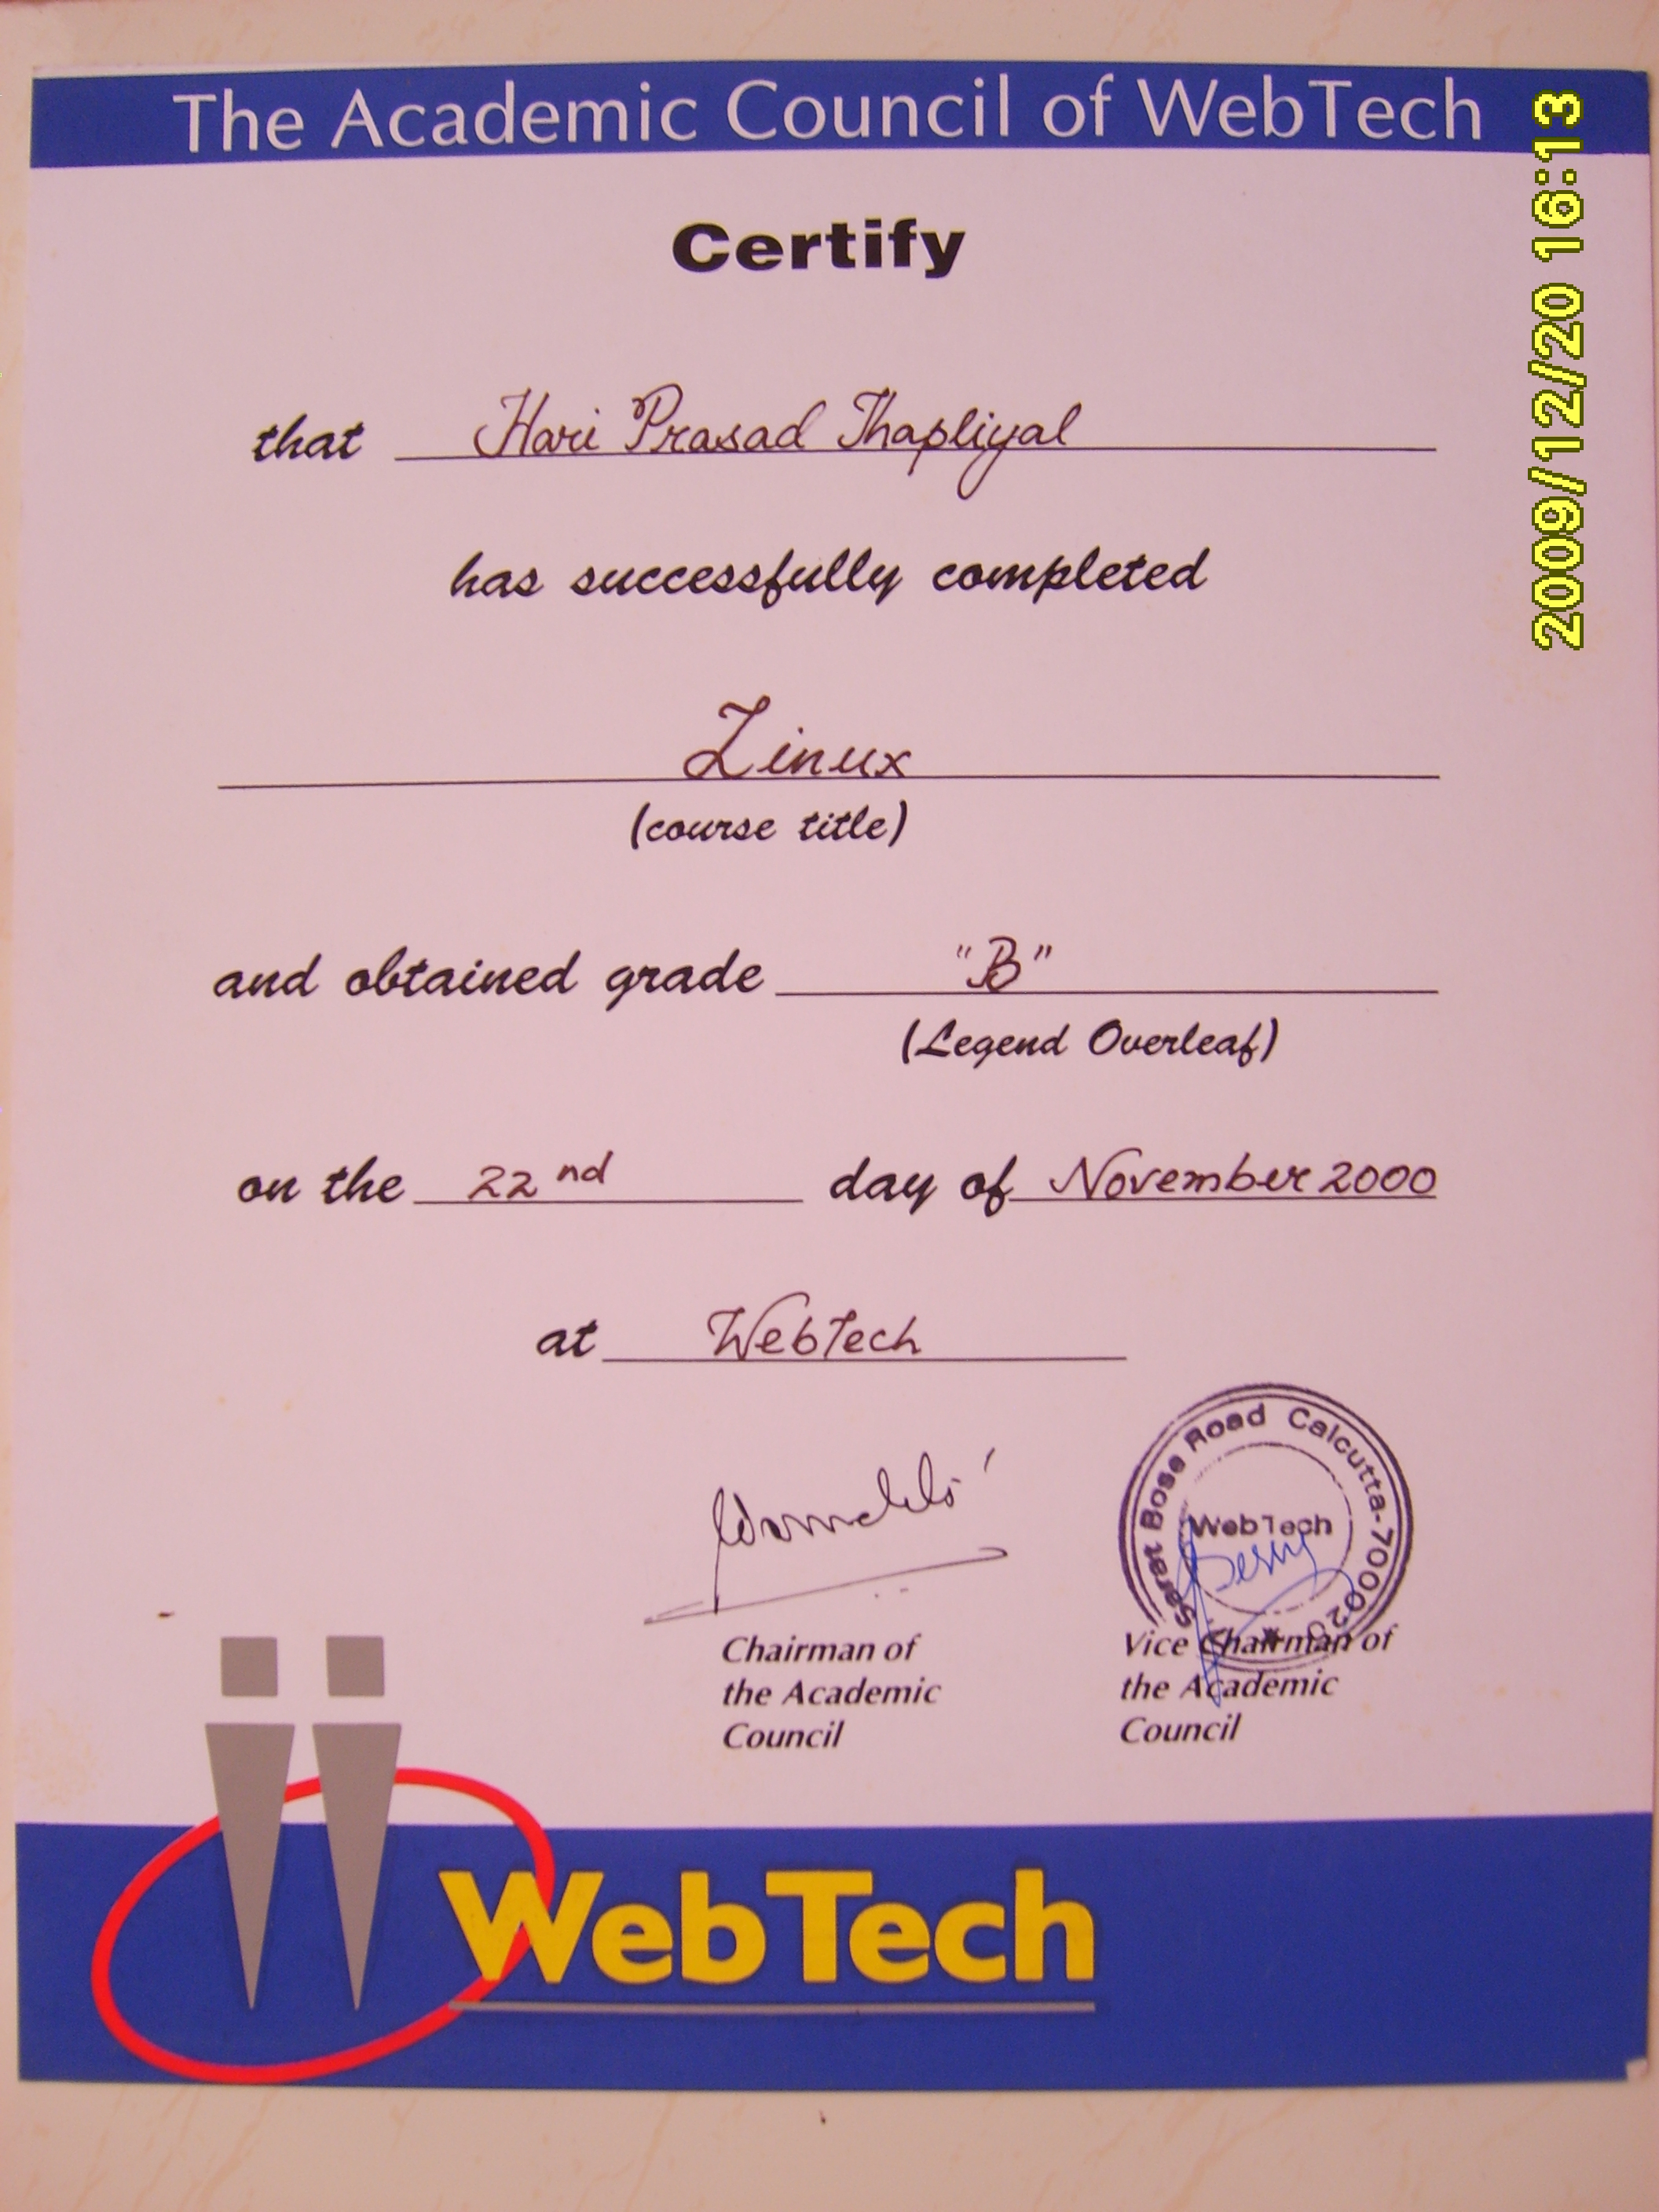 The Academic Council of WebTech
Certify
that Hari Prasad Thapliyal
has successfully completed
Linux
(course title)
and obtained grade "B"
(Legend Overleaf)
on the 22nd day of November 2000
at WebTech
Sarat Bose Road Calcutta-700020
WebTech
Chairman of
the Academic
Council
Vice Chairman of
the Academic
Council
WebTech
2009/12/20 16:13